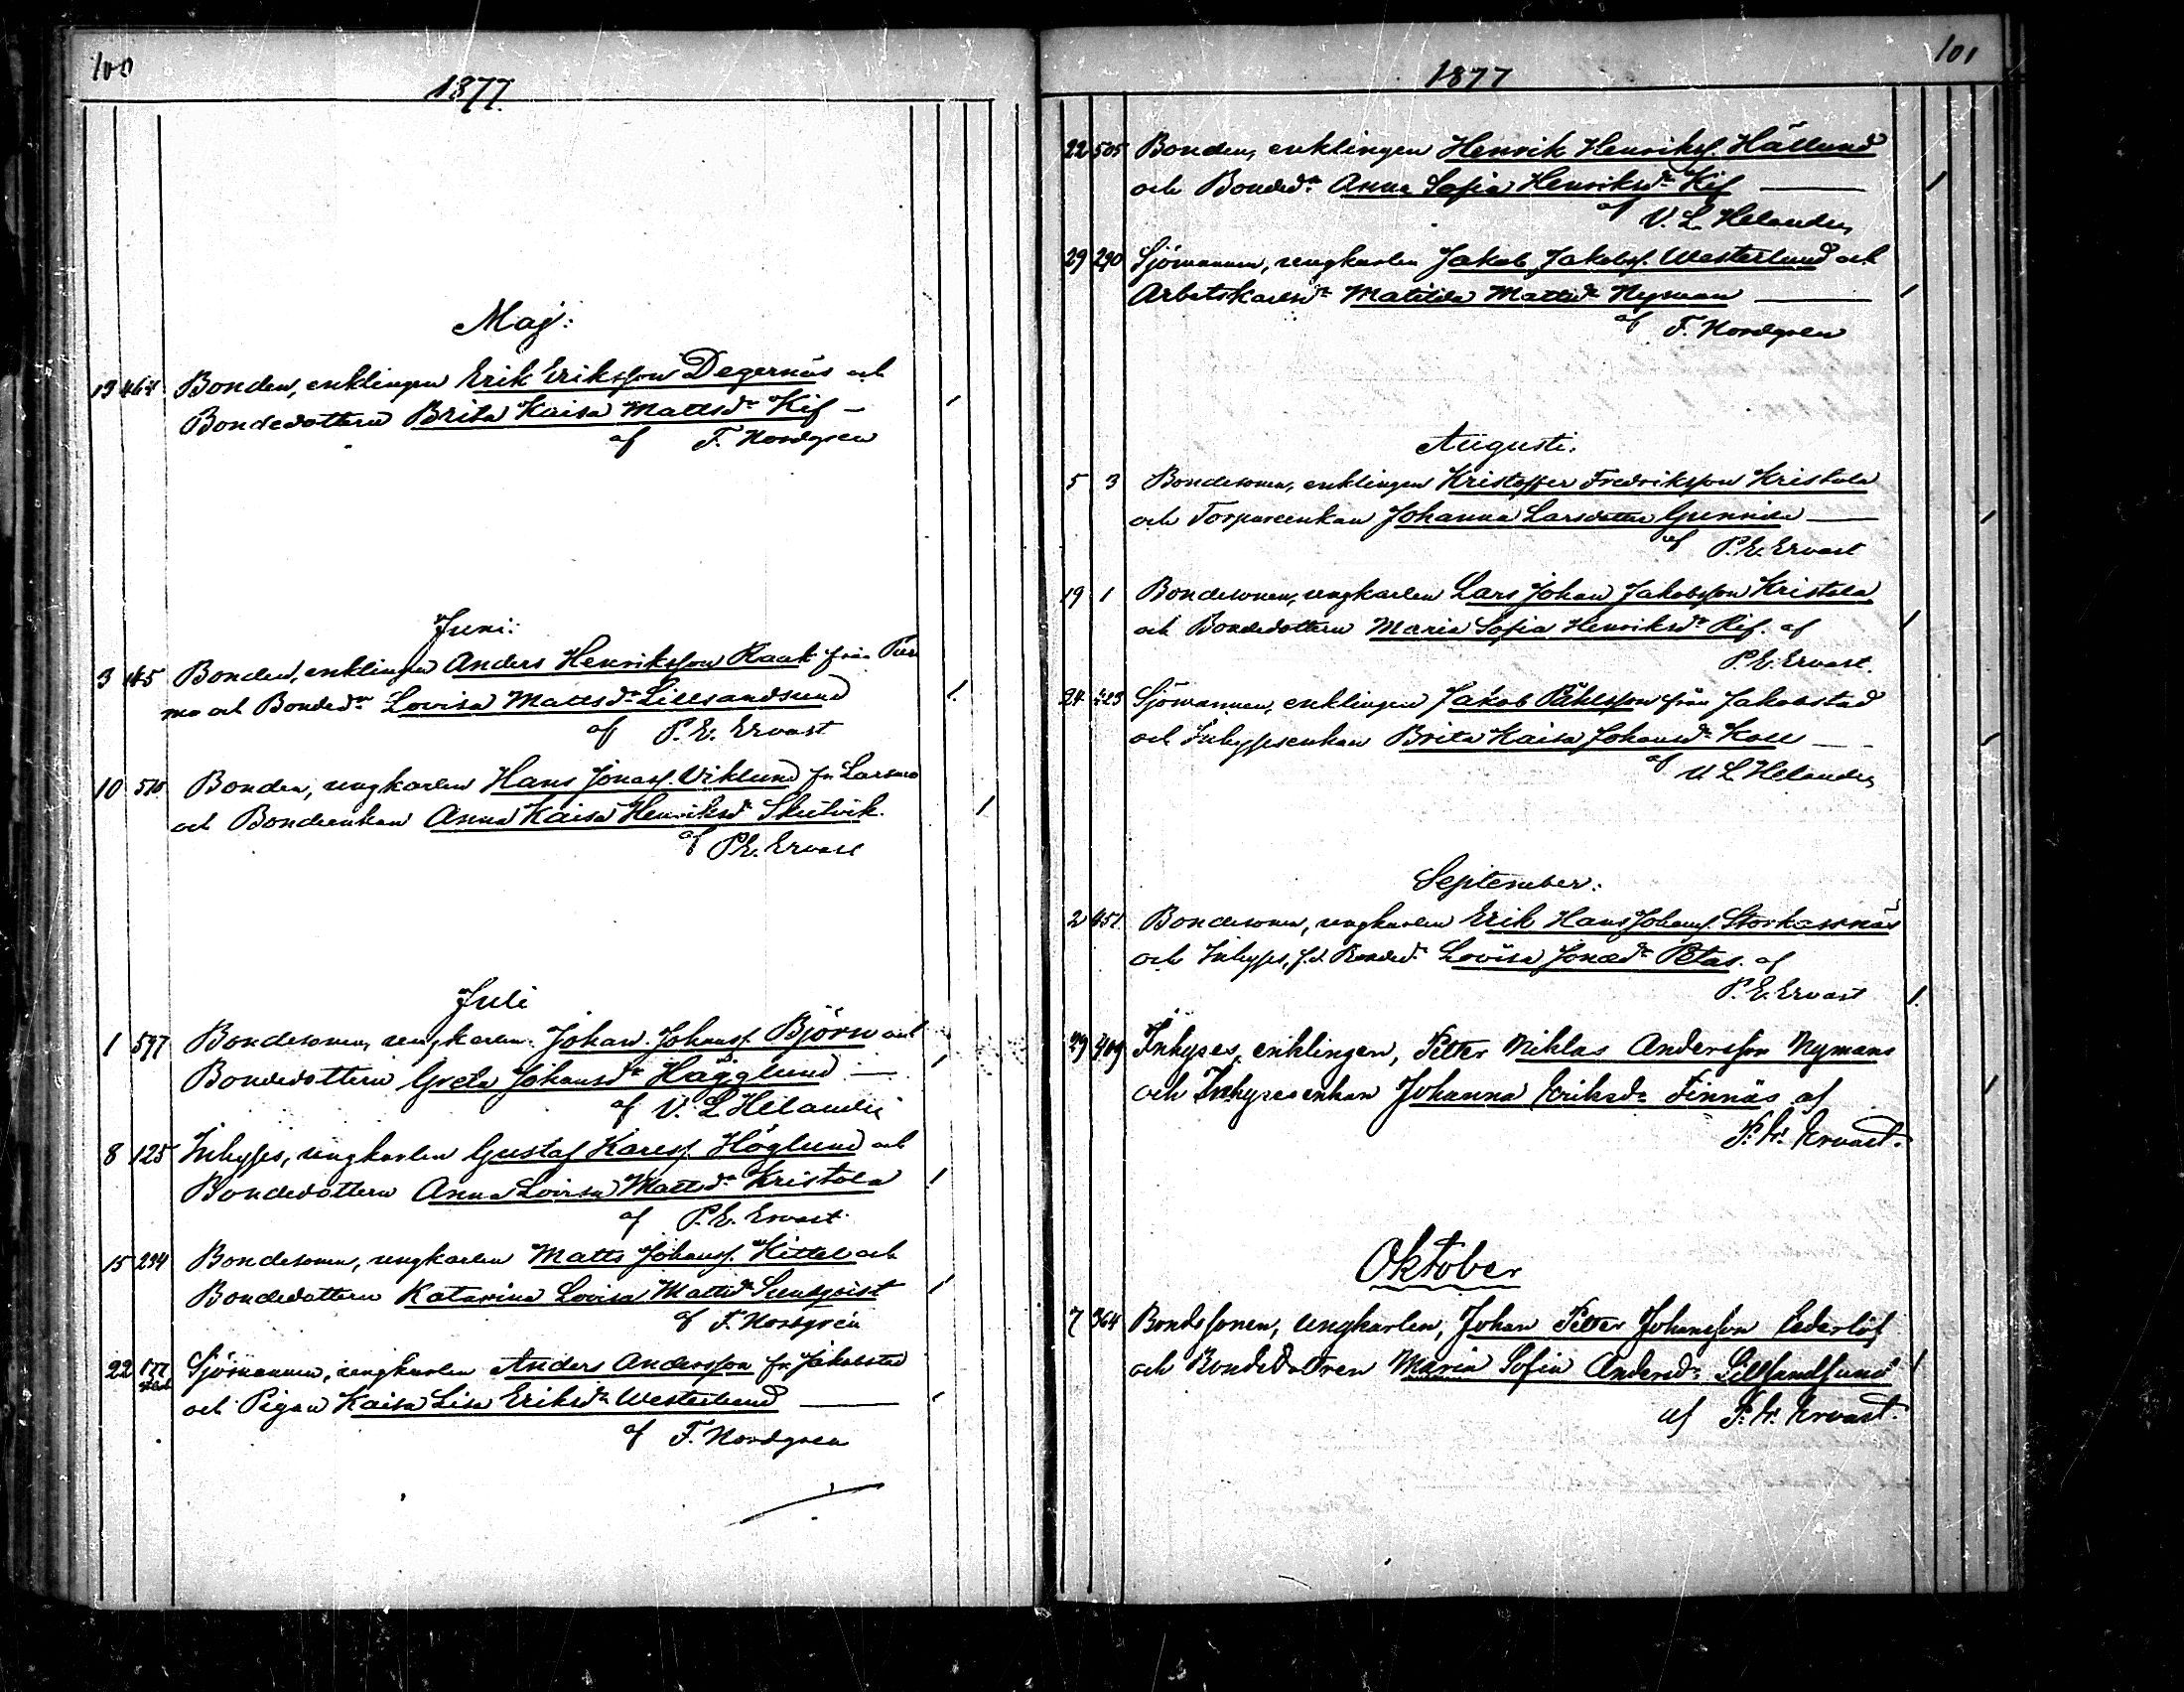 100
1877.
Maj:
13 464 Bonden, enklingen Erik Eriksson Degernäs och
Bondedottern Brita Kaisa Mattsdr Kif –
af F. Nordgren
Juni:
3 Bonden, enklingen Anders Henriksson Kaak från Pur
mo och Bonded.r Lovisa Mattsdr Lillsandsund
af P. E. Ervast
10 Bonden, ungkarlen Hans Jonass. Viklund fr. Larsmo
och Bondeenkan Anna Kaisa Henriksdr Skutvik.
af P.E. Ervast
Juli
1 597 Bondesonen, ungkarlen Johan Johanss. Björn och
Bondedottern Greta Johansdr Hägglund —
af V. L Helander
8 125 Inhyses, ungkarlen Gustaf Karlss. Höglund och
Bondedottern Anna Lovisa Mattsdr Kristola
af P. E. Ervast
15 294 Bondesonen, ungkarlen Matts Johanss. Kittel och
Bondedottern Katarina Lovisa Mattsdr Sundqvist
af F. Nordgren
22 177 Sjömannen, ungkarlen Anders Andersson fr. Jakobstad
och Pigan Kaisa Lisa Eriksdr Westerlund —
af F. Nordgren
101
1877
22 505 Bonden, enklingen Henrik Henrikss. Hällund
och Bonded.r Anna Sofia Henriksdr Kif —
af V. L. Helander
29 290 Sjömannen, ungkarlen Jakob Jakobss. Westerlund och
Arbetskarlsdr Matilda Mattsdr Nyman —
af F. Nordgren
Augusti.
5 3 Bondesonen, enklingen Kristoffer Fredriksson Kristola
och Torpareenkan Johanna Larsdotter —
af P. E. Ervast
19 1 Bondesonen, ungkarlen Lars Johan Jakobsson Kristola
och Bondedottern Maria Sofia Henriksdr Kif. af
P. E. Ervast.
24 Sjömannen, enklingen Jakob Påhlsson från Jakobstad
och Inhysesenkan Brita Kaisa Johansdr Koll —
af V L Helander
September:
2 451 Bondesonen, ungkarlen Erik Hans Johans. Storkassnäs
och Inhyses, f.d. Bonded.r Lovisa Jonaedr Petas. af
P. E. Ervast
29 409 Inhyses, enklingen, Petter Niklas Andersson Nymans
och Inhysesenkan Johanna Eriksdr Finnäs af
P. E. Ervast.
Oktober
7 364 Bondesonen, ungkarlen, Johan Petter Johansson Cederlöf
och Bondedottren Maria Sofia Andersdr Lillsandsund
af P. E. Ervast.